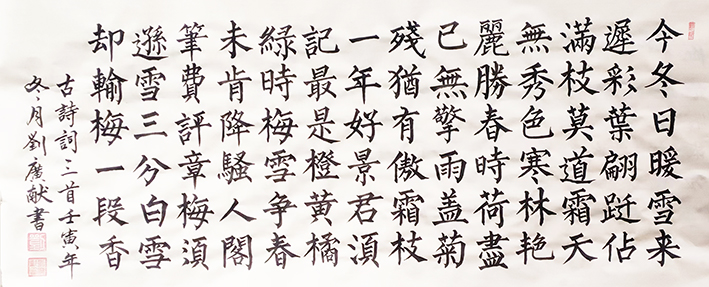 今冬日暖雪来
遲彩葉翩跹佔
滿枝莫道霜天
無秀色寒林艳
麗勝春時荷盡
已無擎雨盖菊
殘猶有傲霜枝
一年好景君湏
記最是橙黄橘
緑時梅雪争春
未肯降騷人閣
筆費評章梅湏
遜雪三分白雪
却輸梅一段香
古詩詞三首壬寅年
冬月劉廣献書